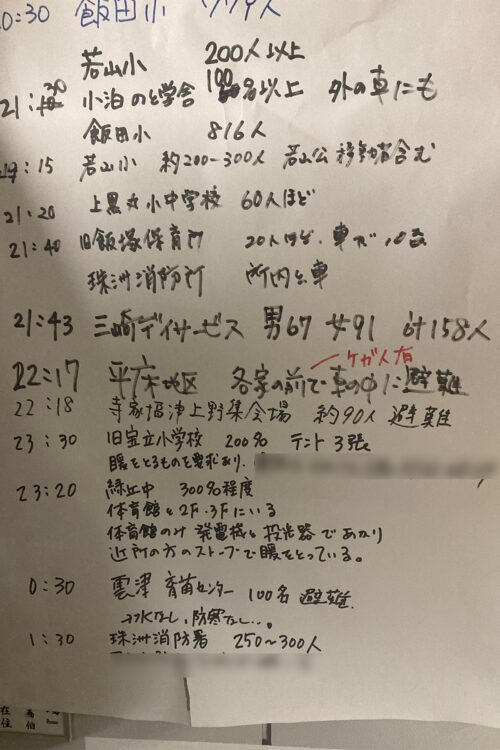 0:30 飯田小
若山小 200人以上
21:30 小泊のと学舎 100名以上 外の車にも
飯田小 816人
:15 若山小 約200-300人 若山公 移動者含む
21:20 上黒丸小中学校 60人ほど
21:40 旧飯塚保育所 20人ほど、車が10台
珠洲消防所 所内と車
21:43 三崎デイサービス 男67 女91 計158人
ケガ人有
22:17 平床地区 各家の前で車の中に避難
22:18 寺家 上野集会場 約90人 避難
23:30 旧宝立小学校 200名 テント3張
暖をとるものを要求あり.
23:20 緑丘中 300名程度
体育館と2F・3Fにいる
体育館のみ 発電機と投光器であかり
近所の方のストーブで暖をとっている。
0:30 雲津 育苗センター 100名 避難.
→水なし、防寒なし...。
1:30 珠洲消防署 250~300人